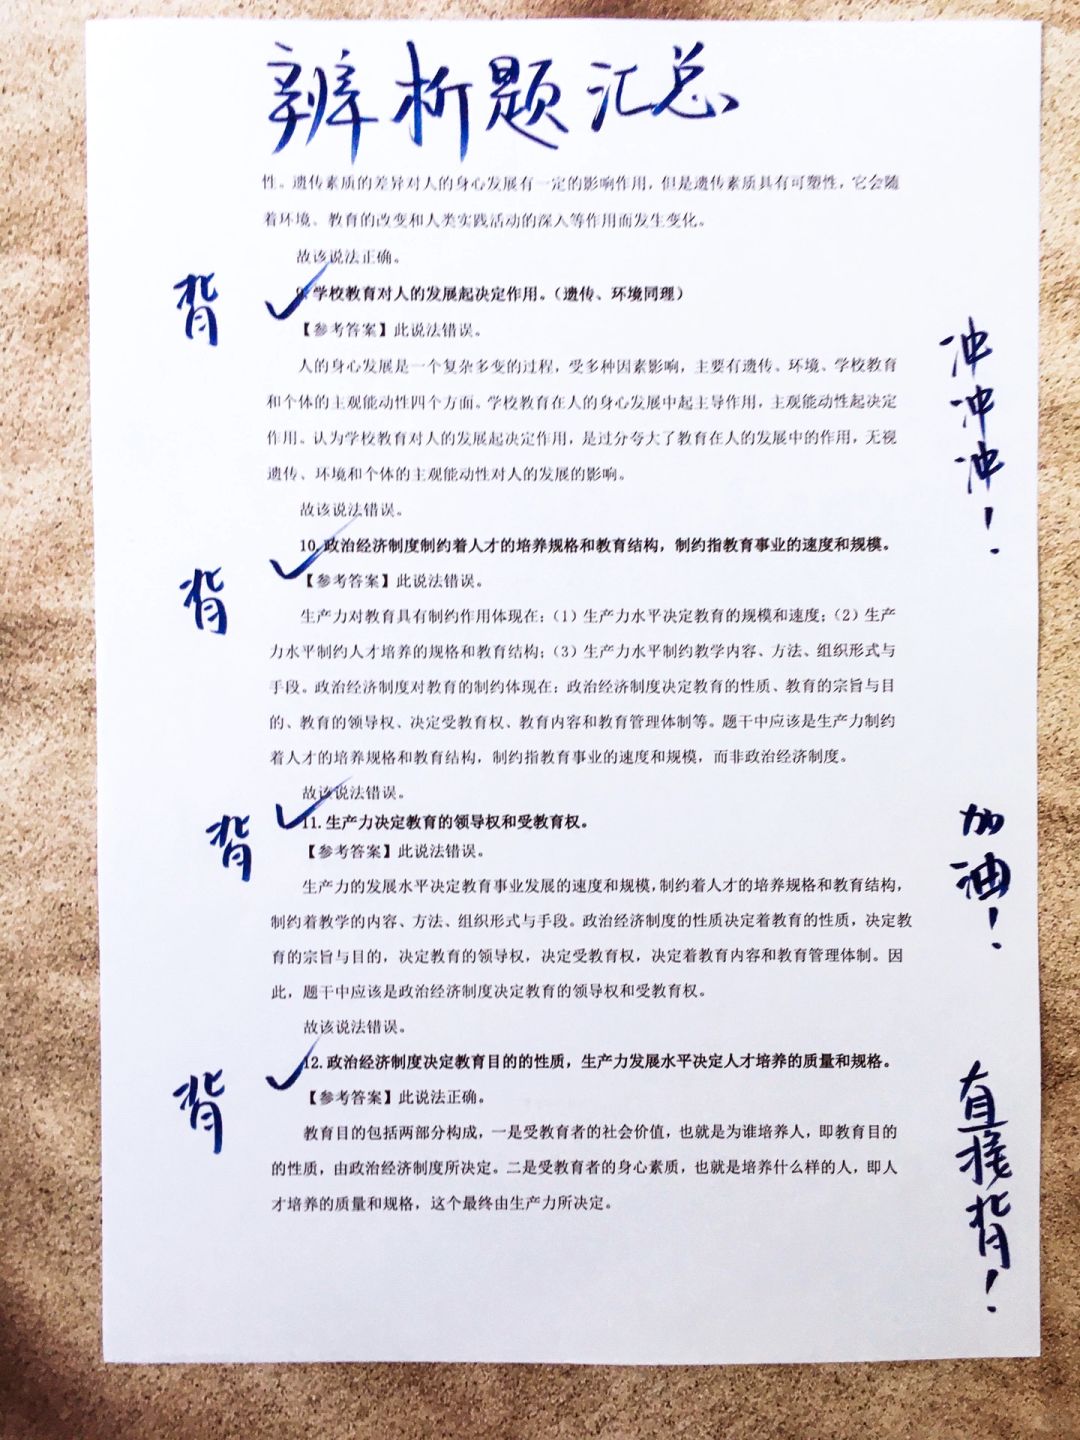 辨析题汇总
性。遗传素质的差异对人的身心发展有一定的影响作用，但是遗传素质具有可塑性，它会随
着环境、教育的改变和人类实践活动的深入等作用而发生变化。
故该说法正确。
背
9.学校教育对人的发展起决定作用。（遗传、环境同理）
【参考答案】此说法错误。
人的身心发展是一个复杂多变的过程，受多种因素影响，主要有遗传、环境、学校教育
和个体的主观能动性四个方面。学校教育在人的身心发展中起主导作用，主观能动性起决定
作用。认为学校教育对人的发展起决定作用，是过分夸大了教育在人的发展中的作用，无视
遗传、环境和个体的主观能动性对人的发展的影响。
故该说法错误。
冲冲冲！
背
10.政治经济制度制约着人才的培养规格和教育结构，制约指教育事业的速度和规模。
【参考答案】此说法错误。
生产力对教育具有制约作用体现在：（1）生产力水平决定教育的规模和速度；（2）生产
力水平制约人才培养的规格和教育结构；（3）生产力水平制约教学内容、方法、组织形式与
手段。政治经济制度对教育的制约体现在：政治经济制度决定教育的性质、教育的宗旨与目
的、教育的领导权、决定受教育权、教育内容和教育管理体制等。题干中应该是生产力制约
着人才的培养规格和教育结构，制约指教育事业的速度和规模，而非政治经济制度。
故该说法错误。
背
11.生产力决定教育的领导权和受教育权。
【参考答案】此说法错误。
生产力的发展水平决定教育事业发展的速度和规模，制约着人才的培养规格和教育结构，
制约着教学的内容、方法、组织形式与手段。政治经济制度的性质决定着教育的性质，决定教
育的宗旨与目的，决定教育的领导权，决定受教育权，决定着教育内容和教育管理体制。因
此，题干中应该是政治经济制度决定教育的领导权和受教育权。
故该说法错误。
加油！
背
12.政治经济制度决定教育目的的性质，生产力发展水平决定人才培养的质量和规格。
【参考答案】此说法正确。
教育目的包括两部分构成，一是受教育者的社会价值，也就是为谁培养人，即教育目的
的性质，由政治经济制度所决定。二是受教育者的身心素质，也就是培养什么样的人，即人
才培养的质量和规格，这个最终由生产力所决定。
直接背！